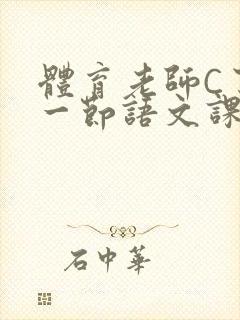 體育老師C了
一節語文課
石中華